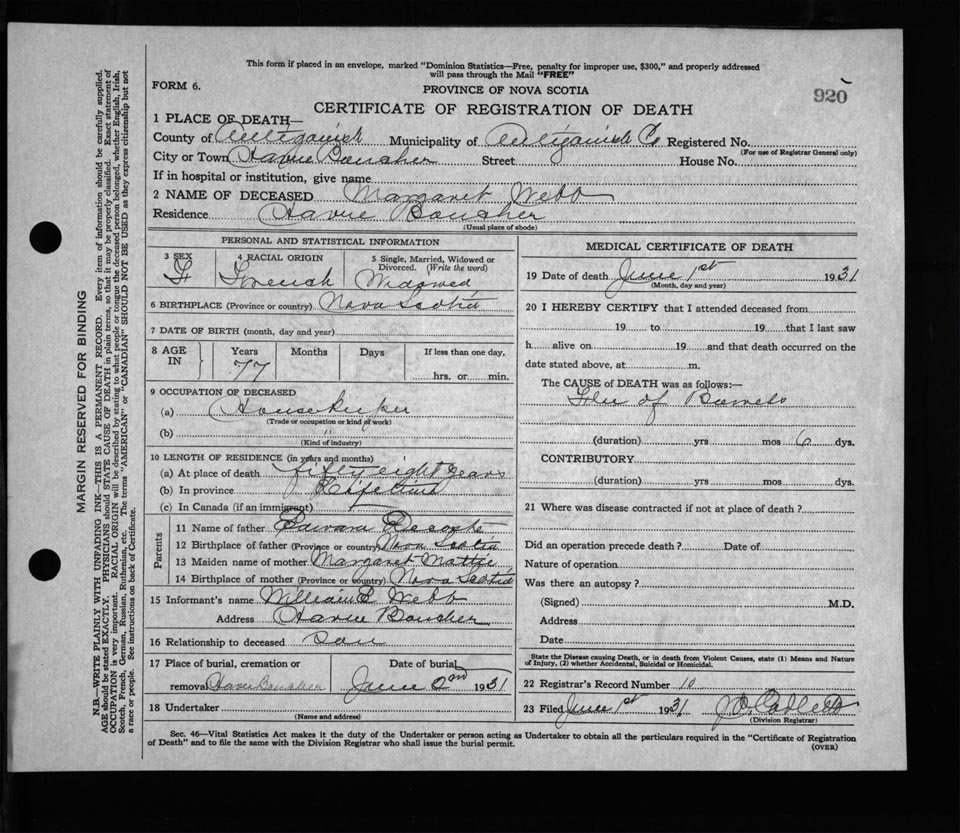 This form if placed in an envelope, marked "Dominion Statistics—Free, penalty for improper use, $300," and properly addressed
will pass through the Mail "FREE"
FORM 6.
PROVINCE OF NOVA SCOTIA
920
CERTIFICATE OF REGISTRATION OF DEATH
1 PLACE OF DEATH—
County of Antigonish Municipality of Antigonish Co Registered No.
(For use of Registrar General only)
City or Town Havre Boucher Street House No.
If in hospital or institution, give name
2 NAME OF DECEASED Margaret Webb
Residence Havre Boucher
(Usual place of abode)
PERSONAL AND STATISTICAL INFORMATION
3 SEX F
4 RACIAL ORIGIN French
5 Single, Married, Widowed or Divorced. (Write the word) Widowed
6 BIRTHPLACE (Province or country) Nova Scotia
7 DATE OF BIRTH (month, day and year)
8 AGE IN Years Months Days If less than one day,
77 hrs. or min.
9 OCCUPATION OF DECEASED
(a) Housekeeper
(Trade or occupation or kind of work)
(b) "
(Kind of industry)
10 LENGTH OF RESIDENCE (in years and months)
(a) At place of death fifty eight years
(b) In province Life time
(c) In Canada (if an immigrant)
Parents
11 Name of father Edward
12 Birthplace of father (Province or country) Nova Scotia
13 Maiden name of mother Margaret
14 Birthplace of mother (Province or country) Nova Scotia
15 Informant's name William Webb
Address Havre Boucher
16 Relationship to deceased Son
17 Place of burial, cremation or Date of burial
removal Havre Boucher June 2nd 1931
18 Undertaker
(Name and address)
MEDICAL CERTIFICATE OF DEATH
19 Date of death June 1st 1931
(Month, day and year)
20 I HEREBY CERTIFY that I attended deceased from
19 to 19 that I last saw
h alive on 19 and that death occurred on the
date stated above, at m.
The CAUSE of DEATH was as follows:—
Flu of Bowels
(duration) yrs mos 6 dys.
CONTRIBUTORY
(duration) yrs mos dys.
21 Where was disease contracted if not at place of death?
Did an operation precede death? Date of
Nature of operation
Was there an autopsy?
(Signed) M.D.
Address
Date
State the Disease causing Death, or in death from Violent Causes, state (1) Means and Nature
of Injury, (2) whether Accidental, Suicidal or Homicidal.
22 Registrar's Record Number 10
23 Filed June 1st 1931
(Division Registrar)
Sec. 46—Vital Statistics Act makes it the duty of the Undertaker or person acting as Undertaker to obtain all the particulars required in the "Certificate of Registration
of Death" and to file the same with the Division Registrar who shall issue the burial permit.
(OVER)
MARGIN RESERVED FOR BINDING
N.B.—WRITE PLAINLY WITH UNFADING INK—THIS IS A PERMANENT RECORD. Every item of information should be carefully supplied.
AGE should be stated EXACTLY. PHYSICIANS should STATE CAUSE OF DEATH in plain terms, so that it may be properly classified. Exact statement of
OCCUPATION is very important. RACIAL ORIGIN will be described by stating to what people or tongue the deceased person belonged, whether English, Irish,
Scotch, French, German, Russian, Ruthenian, etc. The terms "AMERICAN" or "CANADIAN" SHOULD NOT BE USED as they express citizenship but not
a race or people. See instructions on back of Certificate.